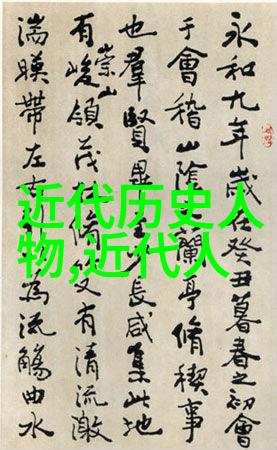 永和九年歲在癸丑暮春之初會
于會稽山陰蘭亭脩稧事
也羣賢畢長咸集此地
有崇山峻領茂脩又有清流激
湍暎帶左右為流觴曲水
近代历史人
物,近代人